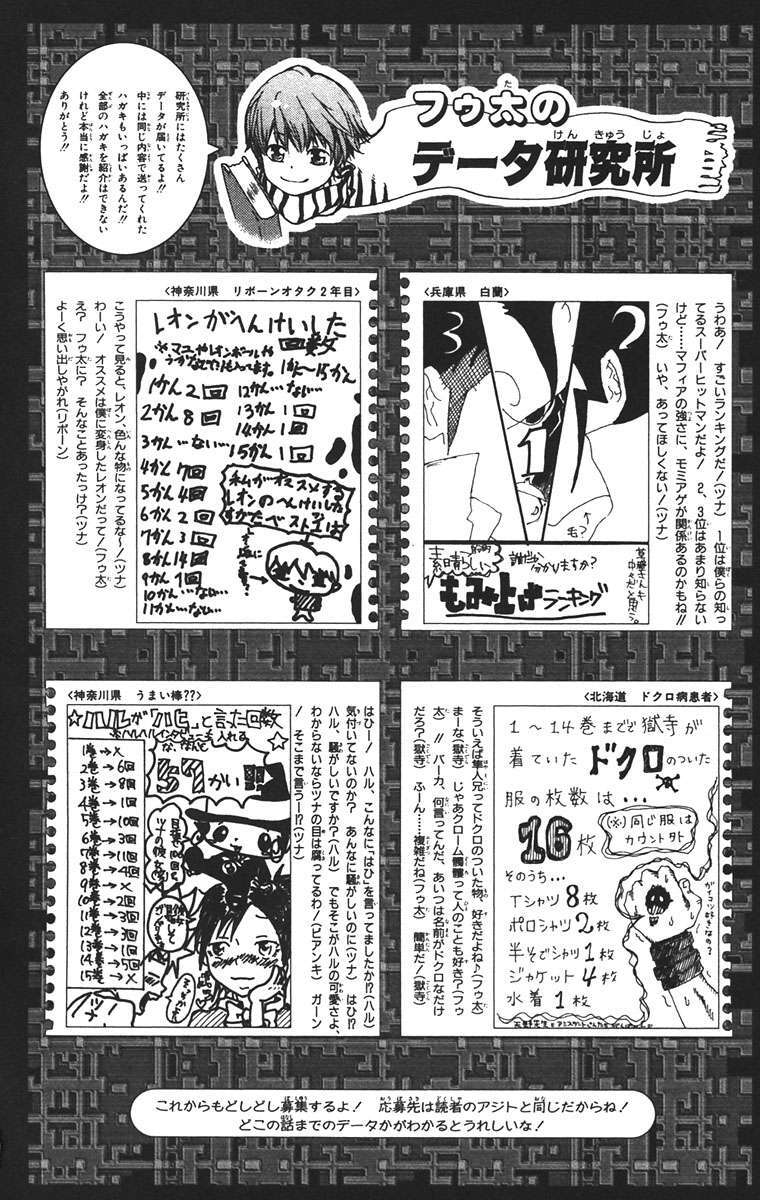 フゥ太の
データ研究所
研究所にはたくさん
データが届いてるよ!!
中には同じ内容で送ってくれた
ハガキもいっぱいあるんだ!!
全部のハガキを紹介はできない
けれど本当に感謝だよ!!
ありがとう!!
〈兵庫県 白蘭〉
うわあ! すごいランキングだ!(ツナ) 1位は僕らの知っ
てるスーパーヒットマンだよ! 2、3位はあまり知らない
けど……マフィアの強さに、モミアゲが関係あるのかもね!!
(フゥ太) いや、あってほしくない!(ツナ)
3
2
1
毛?
素晴らしい
誰だか分かりますか?
もみ上げ
ランキング
〈神奈川県 リボーンオタク2年目〉
レオンがへんけいした
回数
1かん〜15かん
1かん 2回
2かん 8回
3かん …ない…
4かん 7回
5かん 4回
6かん 2回
7かん 3回
8かん 14回
9かん 1回
10かん …ない…
11かん …ない…
12かん …ない…
13かん 1回
14かん 1回
15かん 1回
私がオススメする
レオンのへんけいした
すがたベスト1は
こうやって見ると、レオン、色んな物になってるな〜!(ツナ)
わーい! オススメは僕に変身したレオンだって!(フゥ太)
え? フゥ太に? そんなことあったっけ?(ツナ)
よーく思い出しやがれ(リボーン)
〈北海道 ドクロ病患者〉
1〜14巻までで獄寺が
着ていたドクロのついた
服の枚数は…
16枚
(※)同じ服は
カウント外
そのうち…
Tシャツ 8枚
ポロシャツ 2枚
半そでシャツ 1枚
ジャケット 4枚
水着 1枚
そういえば隼人兄ってドクロのついた物、好きだよね♪(フゥ太)
まーな(獄寺) じゃあクローム髑髏って人のことも好き?(フゥ
太)!! バーカ、何言ってんだ、あいつは名前がドクロなだけ
だろ?(獄寺) ふーん……複雑だね(フゥ太) 簡単だ!(獄寺)
〈神奈川県 うまい棒??〉
☆ハルが「ハヒ」と言った回数
57かい!!
1巻→×
2巻→6回
3巻→8回
4巻→1回
5巻→10回
6巻→3回
7巻→11回
8巻→4回
9巻→×
10巻→2回
11巻→3回
12巻→3回
13巻→1回
14巻→5回
15巻→×
はひー! ハル、こんなに「はひ」を言ってましたか!?(ハル)
気付いてないのか? あんなに騒がしいのに(ツナ) はひ!?
ハル、騒がしいですか?(ハル) でもそこがハルの可愛さよ、
わからないならツナの目は腐ってるわ!(ビアンキ) ガーン
! そこまで言うー!?(ツナ)
これからもどしどし募集するよ! 応募先は読者のアジトと同じだからね!
どこの話までのデータかがわかるとうれしいな!